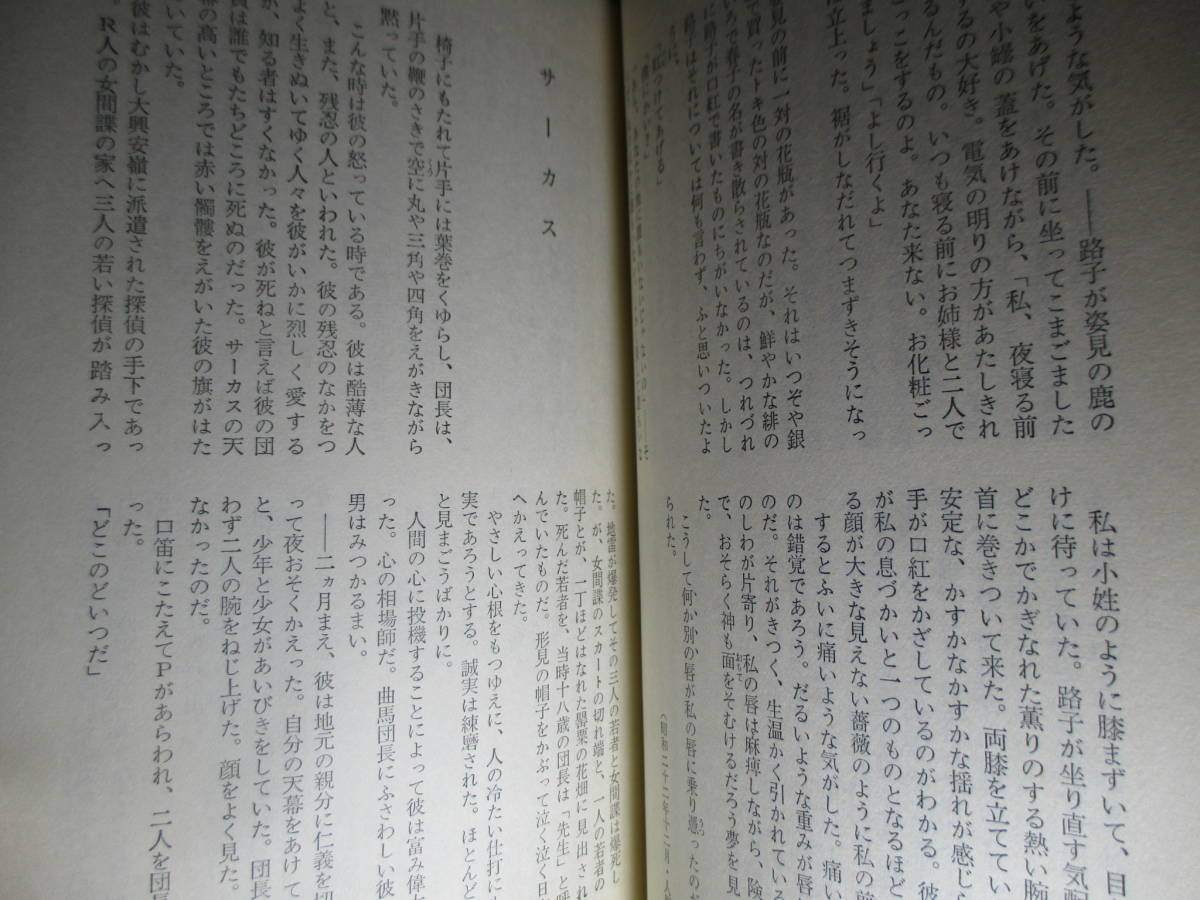 ような気がした。――路子が姿見の鹿の
いをあげた。その前に坐ってこまごました
や小罎の蓋をあけながら、「私、夜寝る前
するの大好き。電気の明りの方があたしきれ
るんだもの。いつも寝る前にお姉様と二人で
っこをするのよ。あなた来ない。お化粧ごっ
ましょう」「よし行くよ」
は立上った。裾がしなだれてつまずきそうになっ
見の前に一対の花瓶があった。それはいつぞや銀
で買ったトキ色の対の花瓶なのだが、鮮やかな緋の
いろで春子の名が書き散らされているのは、つれづれ
に路子が口紅で書いたものにちがいなかった。しかし
路子はそれについては何も言わず、ふと思いついたよ
うに、
つけてあげる」
私は小姓のように膝まずいて、目
けに待っていた。路子が坐り直す気配
どこかでかぎなれた薫りのする熱い腕
首に巻きついて来た。両膝を立ててい
安定な、かすかなかすかな揺れが感じら
手が口紅をかざしているのがわかる。彼
が私の息づかいと一つのものとなるほど
る顔が大きな見えない薔薇のように私の前
するとふいに痛いような気がした。痛い
のは錯覚であろう。だるいような重みが唇
のだ。それがきつく、生温かく引かれている
のしわが片寄り、私の唇は麻痺しながら、険
で、おそらく神も面をそむけるだろう夢を見
た。
こうして何か別の唇が私の唇に乗り憑ったのが
られた。
(昭和二十二年十二月・人
サーカス
椅子にもたれて片手には葉巻をくゆらし、団長は、
片手の鞭のさきで空に丸や三角や四角をえがきながら
黙っていた。
こんな時は彼の怒っている時である。彼は酷薄な人
と、また、残忍の人といわれた。彼の残忍のなかをつ
よく生きぬいてゆく人々を彼がいかに烈しく愛する
か、知る者はすくなかった。彼が死ねと言えば彼の団
員は誰でもたちどころに死ぬのだった。サーカスの天
幕の高いところでは赤い髑髏をえがいた彼の旗がはた
いていた。
彼はむかし大興安嶺に派遣された探偵の手下であっ
。R人の女間諜の家へ三人の若い探偵が踏み入っ
た。地雷が爆発してその三人の若者と女間諜は爆死し
た。が、女間諜のスカートの切れ端と、一人の若者の
帽子とが、一丁ほどはなれた罌粟の花畑に見出され
た。死んだ若者を、当時十八歳の団長は「先生」と呼
んでいたものだ。形見の帽子をかぶって泣く泣く日
へかえってきた。
やさしい心根をもつゆえに、人の冷たい仕打に
実であろうとする。誠実は練磨された。ほとんど
と見まごうばかりに。
人間の心に投機することによって彼は富み偉
った。心の相場師だ。曲馬団長にふさわしい彼
男はみつかるまい。
――二ヵ月まえ、彼は地元の親分に仁義を切
って夜おそくかえった。自分の天幕をあけて
と、少年と少女があいびきをしていた。団長
わず二人の腕をねじ上げた。顔をよく見た。
なかったのだ。
口笛にこたえてPがあらわれ、二人を団長
った。
「どこのどいつだ」